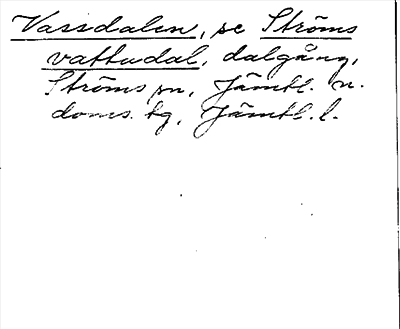 Vassdalen, se Ströms
vattudal, dalgång,
Ströms sn, Jämtl. n.
doms. tg, Jämtl. l.